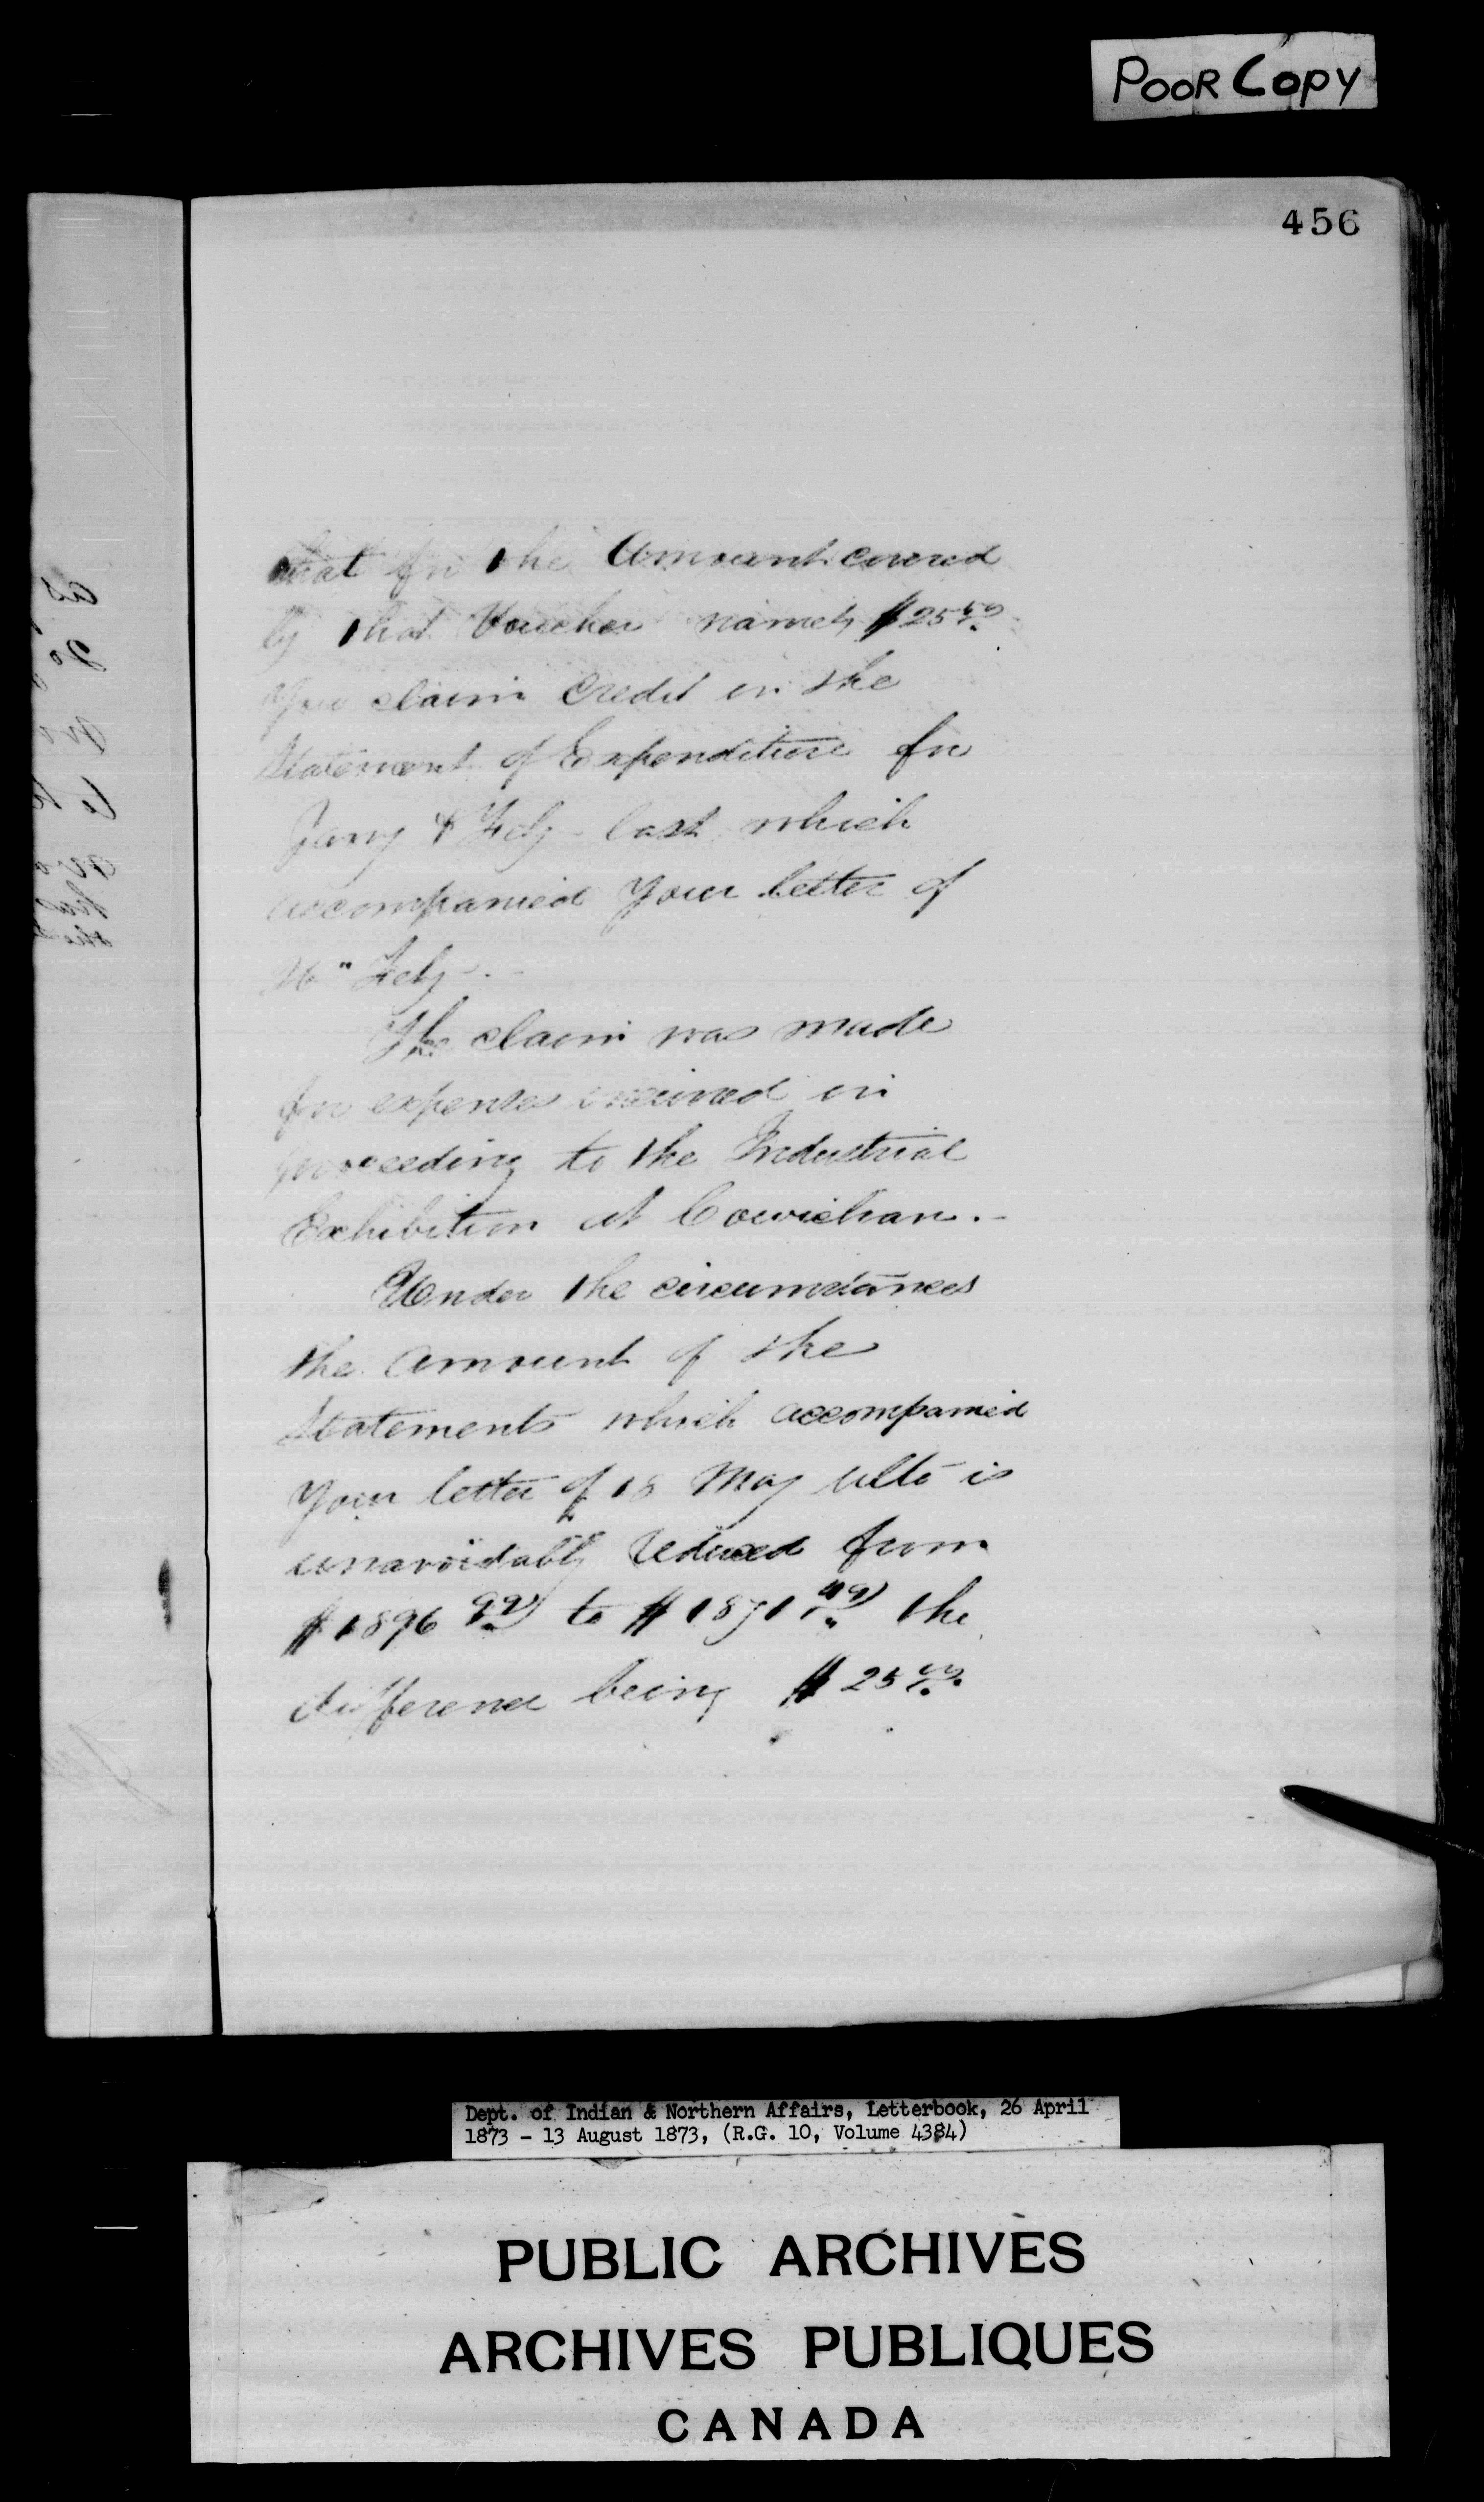 POOR COPY
456
that for the Amount covered
by that Voucher namely $25.50
You claim Credit in the
Statement of Expenditure for
Jany & Feby last which
accompanied your letter of
26" Feby -
The claim was made
for expenses incurred in
proceeding to the Industrial
Exhibition at Cowichan. -
Under the circumstances
the Amount of the
Statements which accompanied
Your letter of 18 May ulto is
unavoidably reduced from
$1896 99 to $1871 49 the
difference being $25
Dept. of Indian & Northern Affairs, Letterbook, 26 April
1873 - 13 August 1873, (R.G. 10, Volume 4384)
PUBLIC ARCHIVES
ARCHIVES PUBLIQUES
CANADA